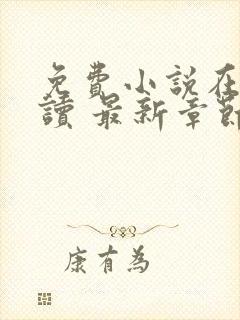 免費小說在
讀 最新章節
康有為